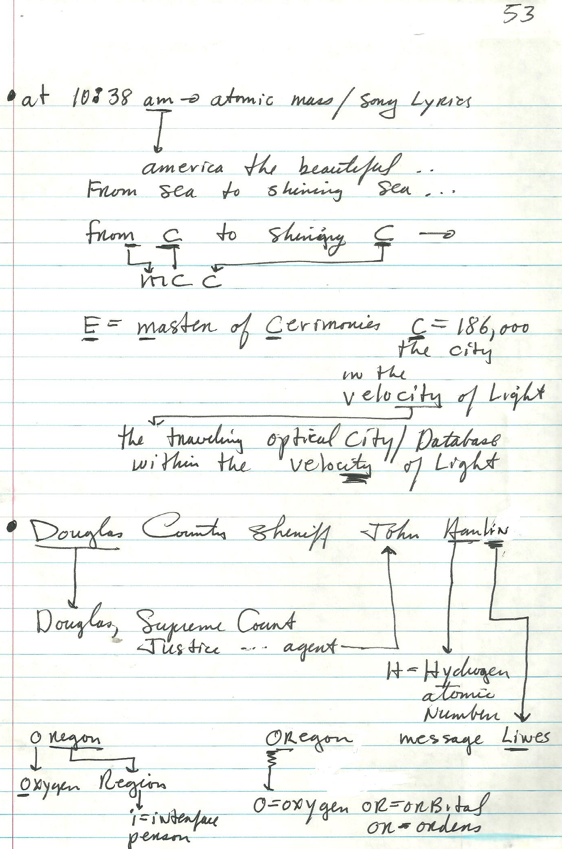 53
• at 10:38 am → atomic mass / Song Lyrics
america the beautiful ..
From sea to shining sea ...
from C to shining C →
m C C
E = master of Cerimonies C = 186,000
the city
in the
velocity of Light
the traveling optical City / Database
within the velocity of Light
• Douglas County Sheriff John Hanlin
Douglas, Supreme Court
Justice ... agent
H = Hydrogen
atomic
Number
Oregon ORegon message Lines
Oxygen Region
O = oxygen OR = orBital
i = interface
or = orders
person